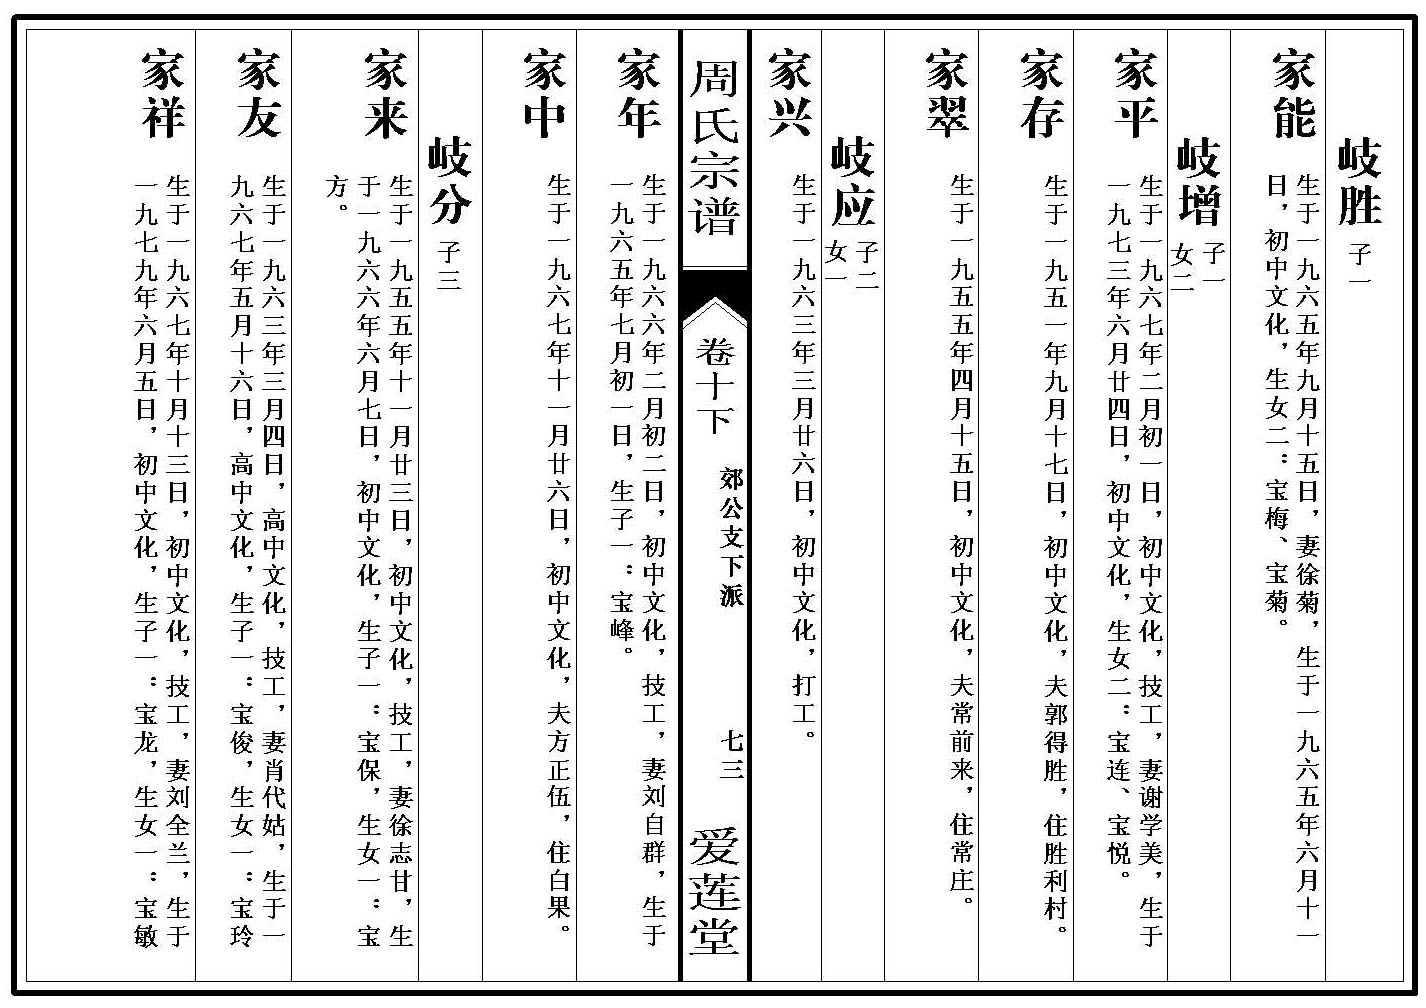 岐胜 子一
家能 生于一九六五年九月十五日，妻徐菊，生于一九六五年六月十一
日，初中文化，生女二：宝梅、宝菊。
岐增 子一
女二
家平 生于一九六七年二月初一日，初中文化，技工，妻谢学美，生于
一九七三年六月廿四日，初中文化，生女二：宝连、宝悦。
家存 生于一九五一年九月十七日，初中文化，夫郭得胜，住胜利村。
家翠 生于一九五五年四月十五日，初中文化，夫常前来，住常庄。
岐应 子二
女一
家兴 生于一九六三年三月廿六日，初中文化，打工。
周氏宗谱 卷十下 郊公支下派 七三 爱莲堂
家年 生于一九六六年二月初二日，初中文化，技工，妻刘自群，生于
一九六五年七月初一日，生子一：宝峰。
家中 生于一九六七年十一月廿六日，初中文化，夫方正伍，住白果。
岐分 子三
家来 生于一九五五年十一月廿三日，初中文化，技工，妻徐志甘，生
于一九六六年六月七日，初中文化，生子一：宝保，生女一：宝
方。
家友 生于一九六三年三月四日，高中文化，技工，妻肖代姑，生于一
九六七年五月十六日，高中文化，生子一：宝俊，生女一：宝玲
家祥 生于一九六七年十月十三日，初中文化，技工，妻刘全兰，生于
一九七九年六月五日，初中文化，生子一：宝龙，生女一：宝敏